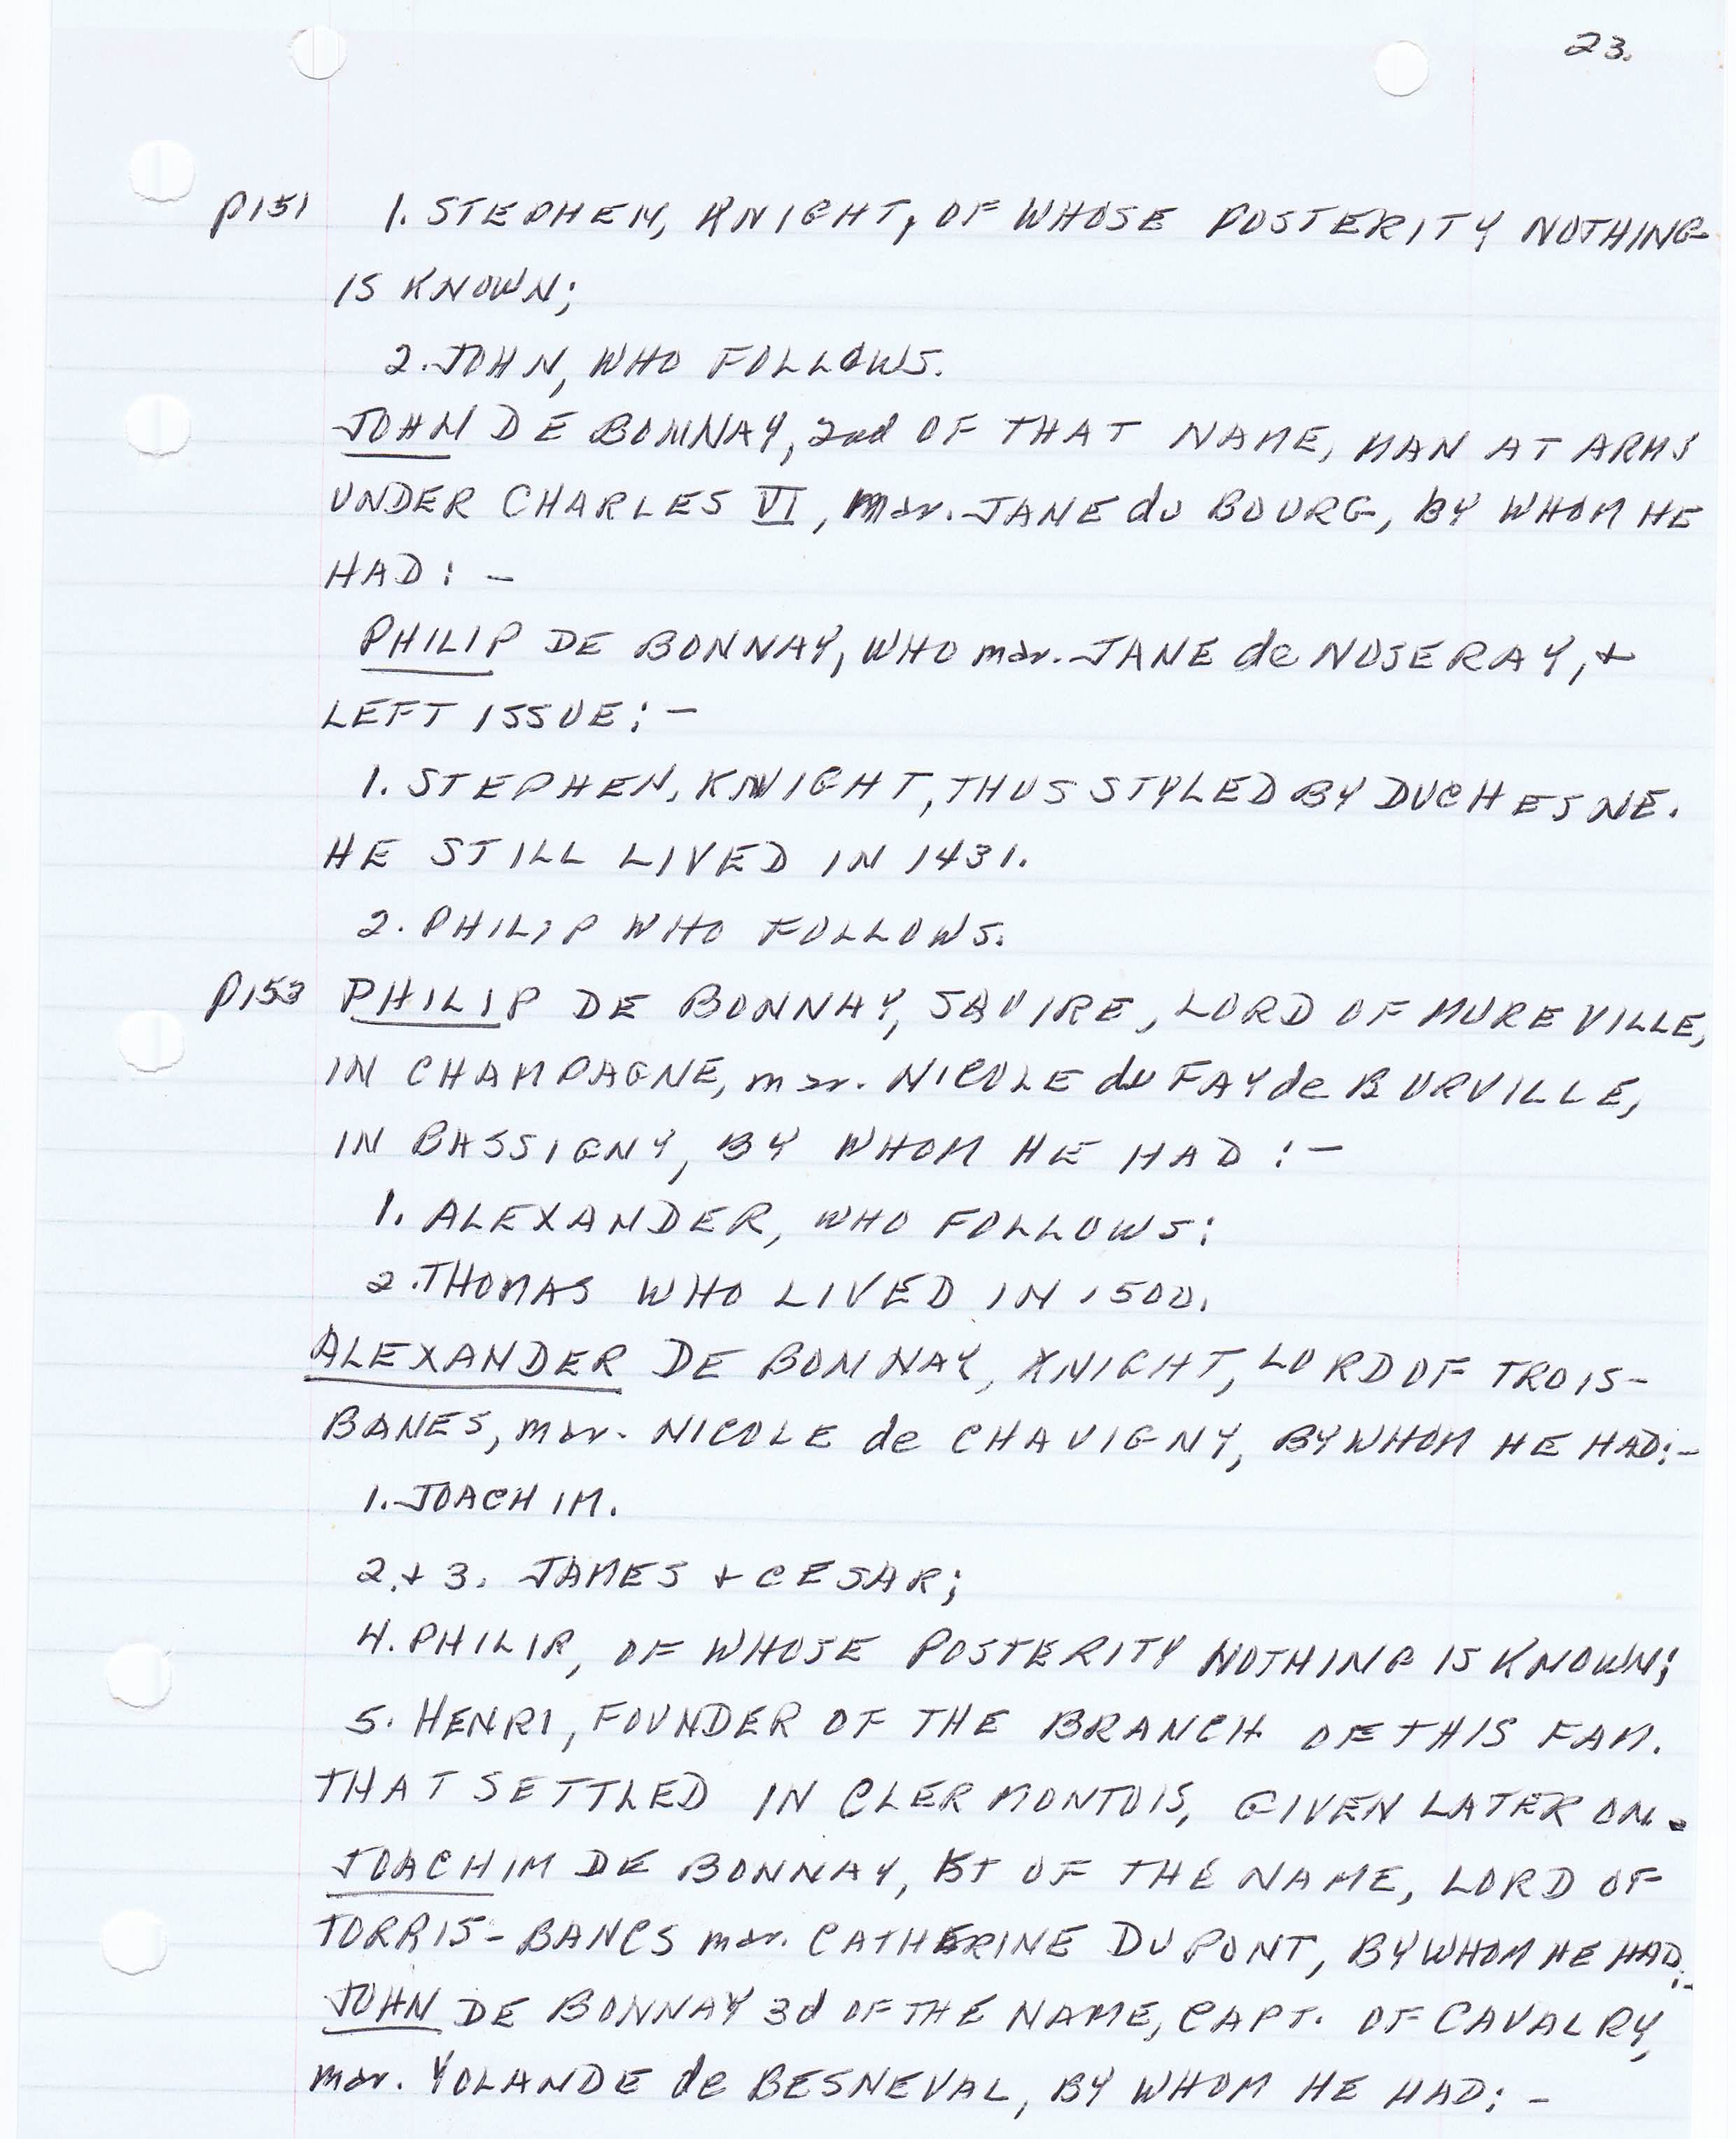 23.
p151 1. STEPHEN, KNIGHT, OF WHOSE POSTERITY NOTHING
IS KNOWN;
2. JOHN, WHO FOLLOWS.
JOHN DE BONNAY, 2nd OF THAT NAME, MAN AT ARMS
UNDER CHARLES VI, mar. JANE du BOURG, BY WHOM HE
HAD: -
PHILIP DE BONNAY, WHO mar. JANE de NOSERAY, +
LEFT ISSUE: -
1. STEPHEN, KNIGHT, THUS STYLED BY DUCHESNE.
HE STILL LIVED IN 1431.
2. PHILIP WHO FOLLOWS.
p153 PHILIP DE BONNAY, SQUIRE, LORD OF MUREVILLE,
IN CHAMPAGNE, mar. NICOLE du FAY de BURVILLE,
IN BASSIGNY, BY WHOM HE HAD: -
1. ALEXANDER, WHO FOLLOWS;
2. THOMAS WHO LIVED IN 1500.
ALEXANDER DE BONNAY, KNIGHT, LORD OF TROIS-
BANES, mar. NICOLE de CHAVIGNY, BY WHOM HE HAD: -
1. JOACHIM.
2. + 3. JAMES + CESAR;
4. PHILIP, OF WHOSE POSTERITY NOTHING IS KNOWN;
5. HENRI, FOUNDER OF THE BRANCH OF THIS FAM.
THAT SETTLED IN CLERMONTOIS, GIVEN LATER ON.
JOACHIM DE BONNAY, 1ST OF THE NAME, LORD OF
TORRIS-BANCS mar. CATHERINE DU PONT, BY WHOM HE HAD: -
JOHN DE BONNAY 3d OF THE NAME, CAPT. OF CAVALRY,
mar. YOLANDE de BESNEVAL, BY WHOM HE HAD: -